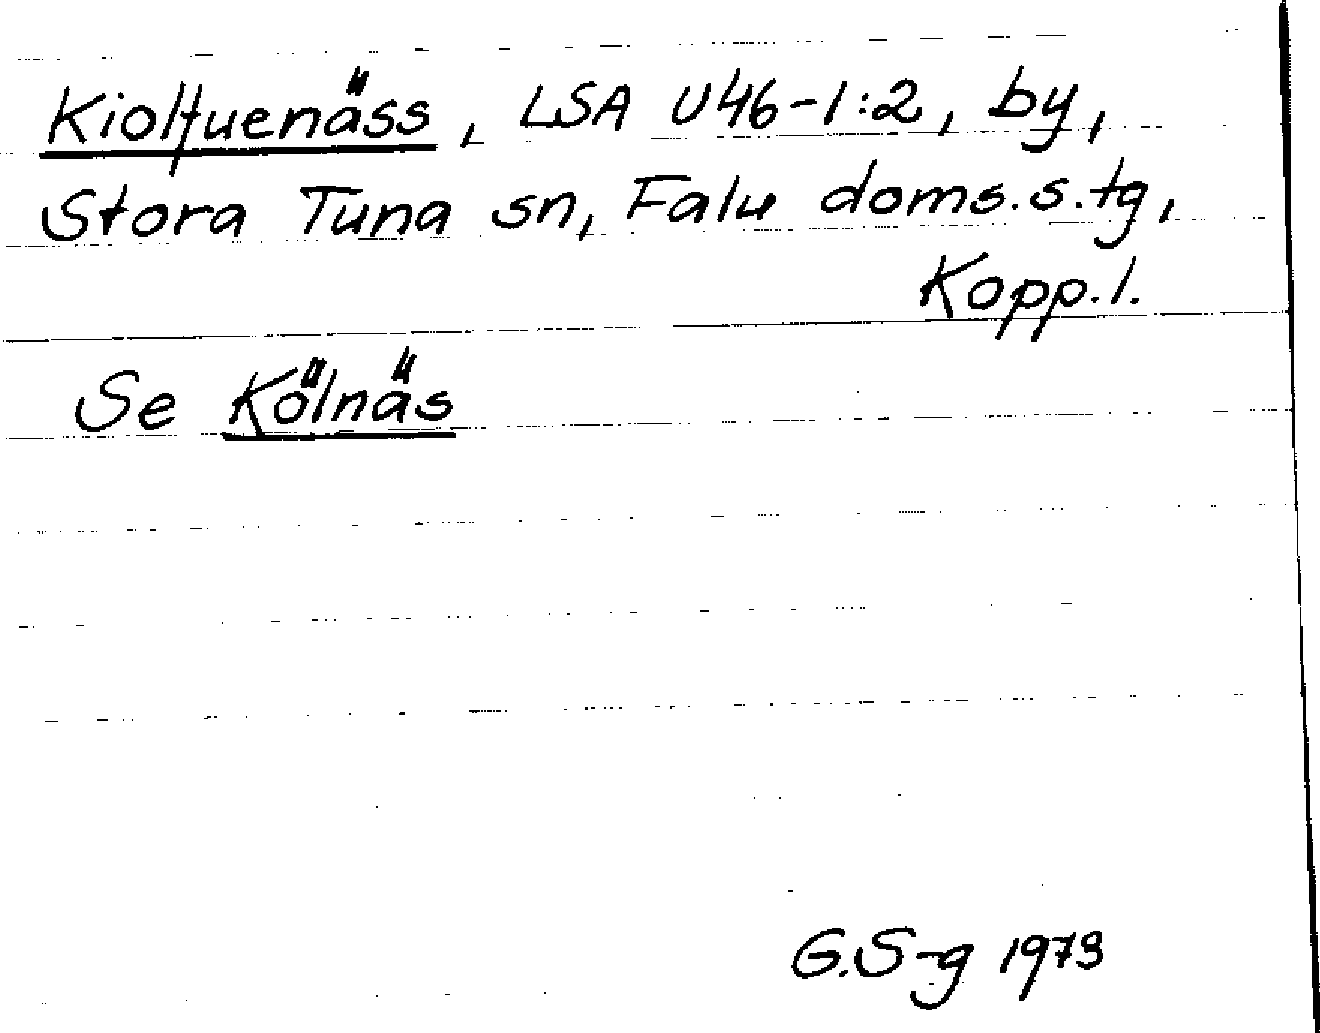 Kiolfuenäss, LSA U46-1:2, by,
Stora Tuna sn, Falu doms.s.tg,
Kopp.l.
Se Kölnäs
G.S-g 1973